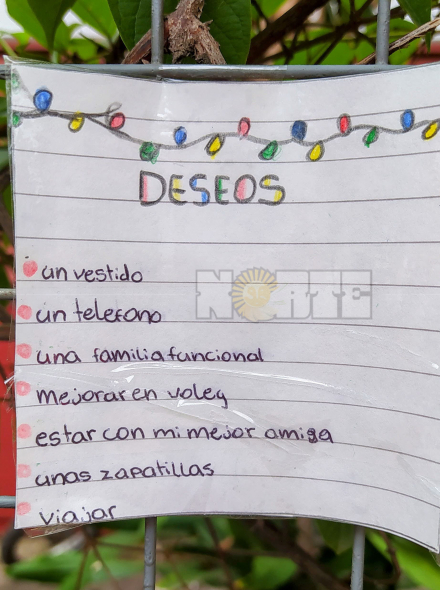 DESEOS
un vestido
un telefono
una familia funcional
mejorar en voley
estar con mi mejor amiga
unas zapatillas
viajar
NORTE